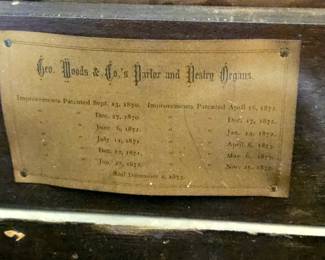 Geo. Woods & Co.'s Parlor and Vestry Organs.
Improvements Patented Sept. 13, 1870. Improvements Patented April 16, 1872.
" " Dec. 27, 1870. " " Dec. 17, 1872.
" " June 6, 1871. " " Jan. 14, 1873.
" " July 11, 1871. " " April 8, 1873.
" " Dec. 12, 1871. " " May 6, 1873.
" " Jan. 1872. " " Nov. 25, 1873.
And December 2, 1873.